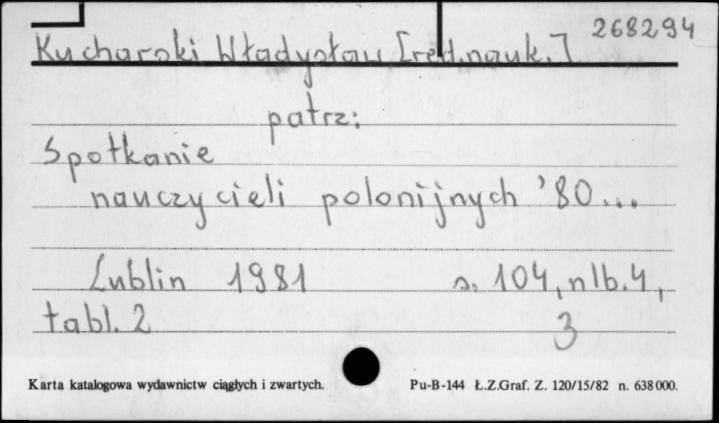 268294
Kucharski Władysław [red.nauk.]
patrz:
Spotkanie
nauczycieli polonijnych '80...
Lublin 1981 s. 104, nlb. 4,
tabl. 2 3
Karta katalogowa wydawnictw ciągłych i zwartych. Pu-B-144 Ł.Z.Graf. Z. 120/15/82 n. 638 000.